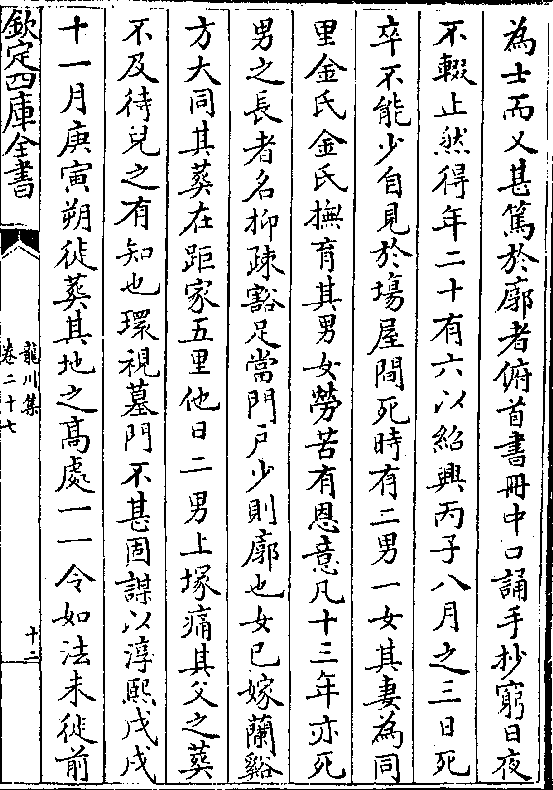 為士而又甚篤於廓者俯首書冊中口誦手抄窮日夜
不輟止然得年二十有六以紹興丙子八月之三日死
卒不能少自見於場屋間死時有二男一女其妻為同
里金氏金氏撫育其男女勞苦有恩意凡十三年亦死
男之長者名抑疎豁足當門戶少則廓也女已嫁蘭谿
方大同其葬在距家五里他日二男上塚痛其父之葬
不及待兒之有知也環視墓門不甚固謀以淳熙戊戌
十一月庚寅朔徙葬其地之高處一一令如法未徙前
欽定四庫全書
龍川集
卷二十七
十二